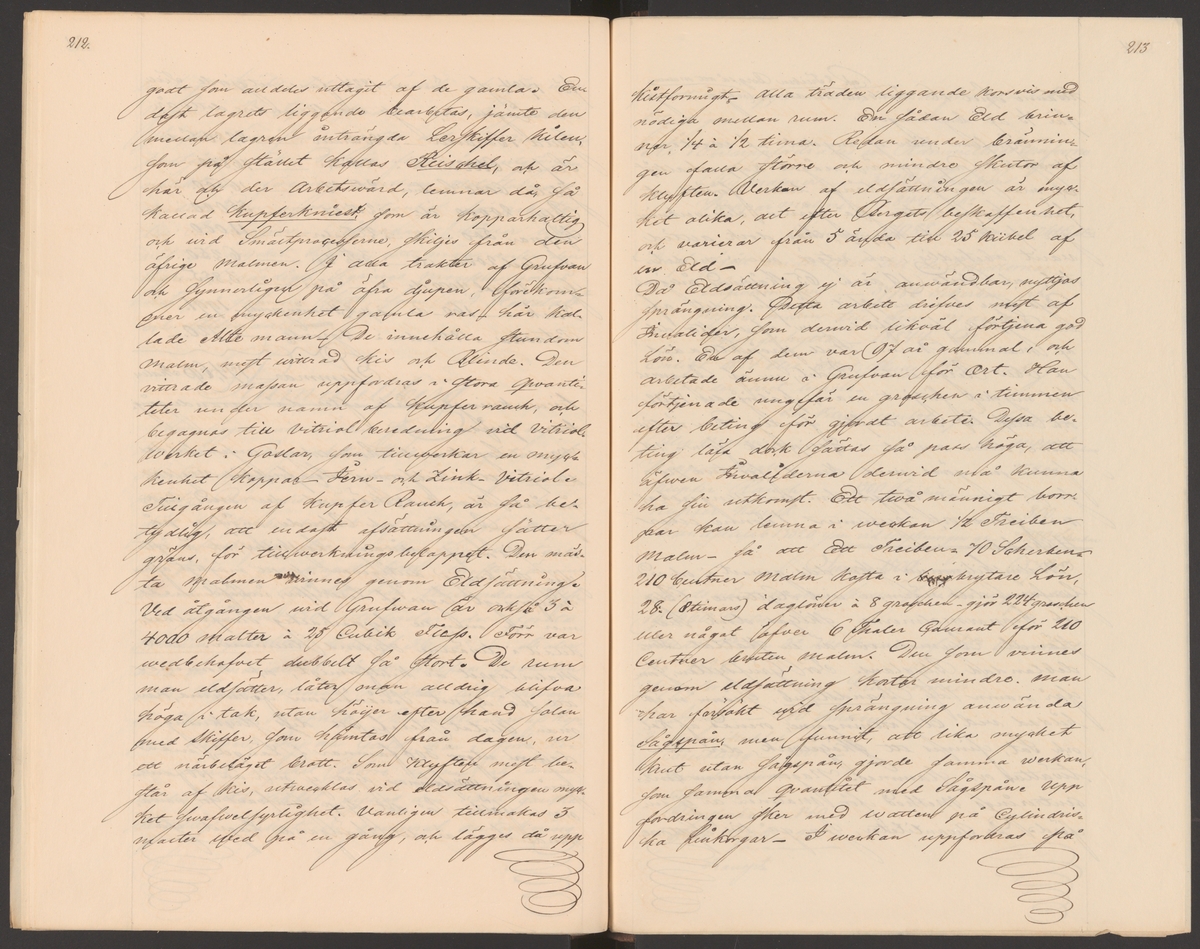 212.
godt som alldeles uttagit af de gamla. En
dast lagrets liggande bearbetas, jämte den
mellan lagren inträngda Lerskiffer kilen,
som på stället kallas Reischel, och är
här och der Arbetswärd, lemnar då så
kallad Kupferkniest, som är kopparhaltig
och wid Smältprocesserne, skiljes från den
öfrige malmen. I alla trakter af Grufvan
och synnerligen på öfra djupen, förekom-
mer en myckenhet gamla ras, här kal-
lade Alte mann. De innehålla stundom
malm, mest wittrad kis och Blende. Den
vittrade massan uppfordras i stora qvanti-
teter under namn af Kupfer rauch, och
begagnas till vitriol beredning vid vitriol-
werket i Goslar, som tillwerkar en myc-
kenhet Koppar- Jern- och Zink- Vitriol.
Tillgången af Kupfer Rauch, är så be-
tydlig, att endast afsättningen sätter
gräns, för tillwerkningsbeloppet. Den mäs-
ta malmen winnes genom Eldsättning.
Ved åtgången wid Grufwan är också 3 à
4000 malter à 25 Cubik Fuss. Förr var
wedbehofvet dubbelt så stort. De rum
man eldsätter, låter man alldrig blifva
höga i tak, utan höijer efter hand solan
med skiffer, som hämtas från dagen, ur
ett närbeläget brott. Som Klyften mest be-
står af kis, utwecklas vid eldsättningen myc-
ket swafwelsyrlighet. Vanligen tillmakas 3
malter wed på en gång, och lägges då upp
213
kistformigt, alla träden liggande korsvis med
nödiga mellan rum. En sådan Eld brin-
ner 1/4 à 1/2 tima. Redan under brännin-
gen falla större och mindre skutor af
klyften. Verkan af eldsättningen är myc-
ket olika, alt efter Bergets beskaffenhet,
och varierar från 5 ända till 25 Kübel af
en Eld —
Då Eldsättning ej är användbar, nyttjas
sprängning. Detta arbete drifves mest af
Invalider, som derwid likväl förtjena god
Lön. En af dem var 97 år gammal, och
arbetade ännu i Grufvan för Ort. Han
förtjenade ungefär en groschen i timmen
efter beting för gjordt arbete. Dessa be-
ting läsa dock sättas så pass höga, att
äfwen Invaliderna derwid må kunna
ha sin utkomst. Ett twå männigt borr-
par kan lemna i weckan 1/2 Treiben
malm — så att Ett Treiben = 70 Scherben =
210 Centner malm kosta i brytare Lön,
28. (8timars) daglöner à 8 groschen — gjör 224 groschen
eller något öfver 6 Thaler Courant för 210
Centner bruten malm. Den som vinnes
genom eldsättning kostar mindre. man
har försökt wid sprängning använda
sågspån, men funnit, att lika mycket
krut utan sågspån, gjorde samma werkan,
som samma qvantitet med sågspån. Upp
fordringen sker med watten på Cylindris-
ka linkorgar — I weckan uppfordras på